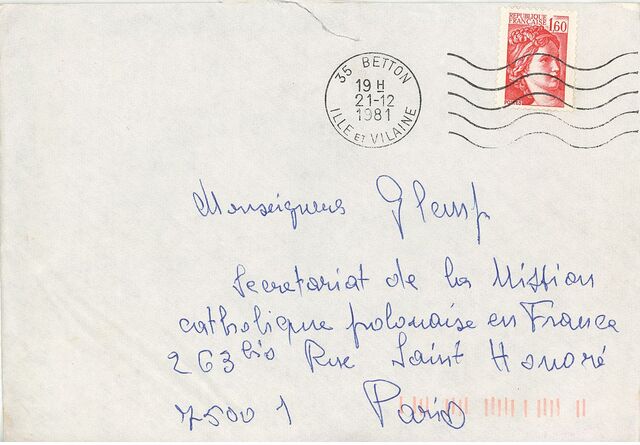 REPUBLIQUE
FRANÇAISE 1,60
35 BETTON
19 H
21-12
1981
ILLE ET VILAINE
Monseigneur Glemp
Secretariat de la Mission
catholique polonaise en France
263 bis Rue Saint Honoré
75001 Paris